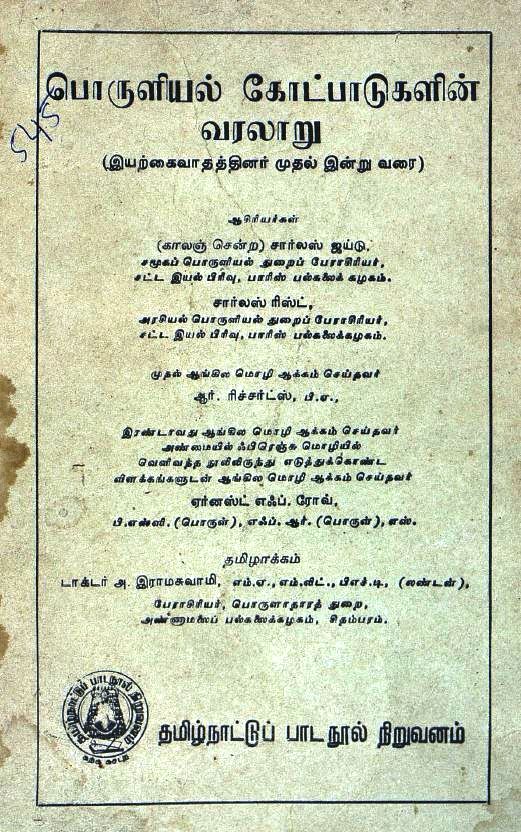 பொருளியல் கோட்பாடுகளின்
வரலாறு
(இயற்கைவாதத்தினர் முதல் இன்று வரை)
545
ஆசிரியர்கள்
(காலஞ் சென்ற) சார்லஸ் ஜய்டு,
சமூகப் பொருளியல் துறைப் பேராசிரியர்,
சட்ட இயல் பிரிவு, பாரிஸ் பல்கலைக் கழகம்.
சார்லஸ் ரிஸ்ட்,
அரசியல் பொருளியல் துறைப் பேராசிரியர்,
சட்ட இயல் பிரிவு, பாரிஸ் பல்கலைக்கழகம்.
முதல் ஆங்கில மொழி ஆக்கம் செய்தவர்
ஆர். ரிச்சர்ட்ஸ், பி.ஏ.,
இரண்டாவது ஆங்கில மொழி ஆக்கம் செய்தவர்
அண்மையில் ஃபிரெஞ்சு மொழியில்
வெளிவந்த நூலிலிருந்து எடுத்துக்கொண்ட
விளக்கங்களுடன் ஆங்கில மொழி ஆக்கம் செய்தவர்
ஏர்னஸ்ட் எஃப். ரோவ்,
பி.எஸ்ஸி. (பொருள்), எஃப். ஆர். (பொருள்), எஸ்.
தமிழாக்கம்
டாக்டர் அ. இராமசுவாமி, எம்.ஏ., எம்.லிட்., பிஎச்.டி., (லண்டன்),
பேராசிரியர், பொருளாதாரத் துறை,
அண்ணாமலைப் பல்கலைக்கழகம், சிதம்பரம்.
தமிழ்நாட்டுப் பாடநூல் நிறுவனம்
தமிழ்நாட்டுப் பாட நூல் நிறுவனம்